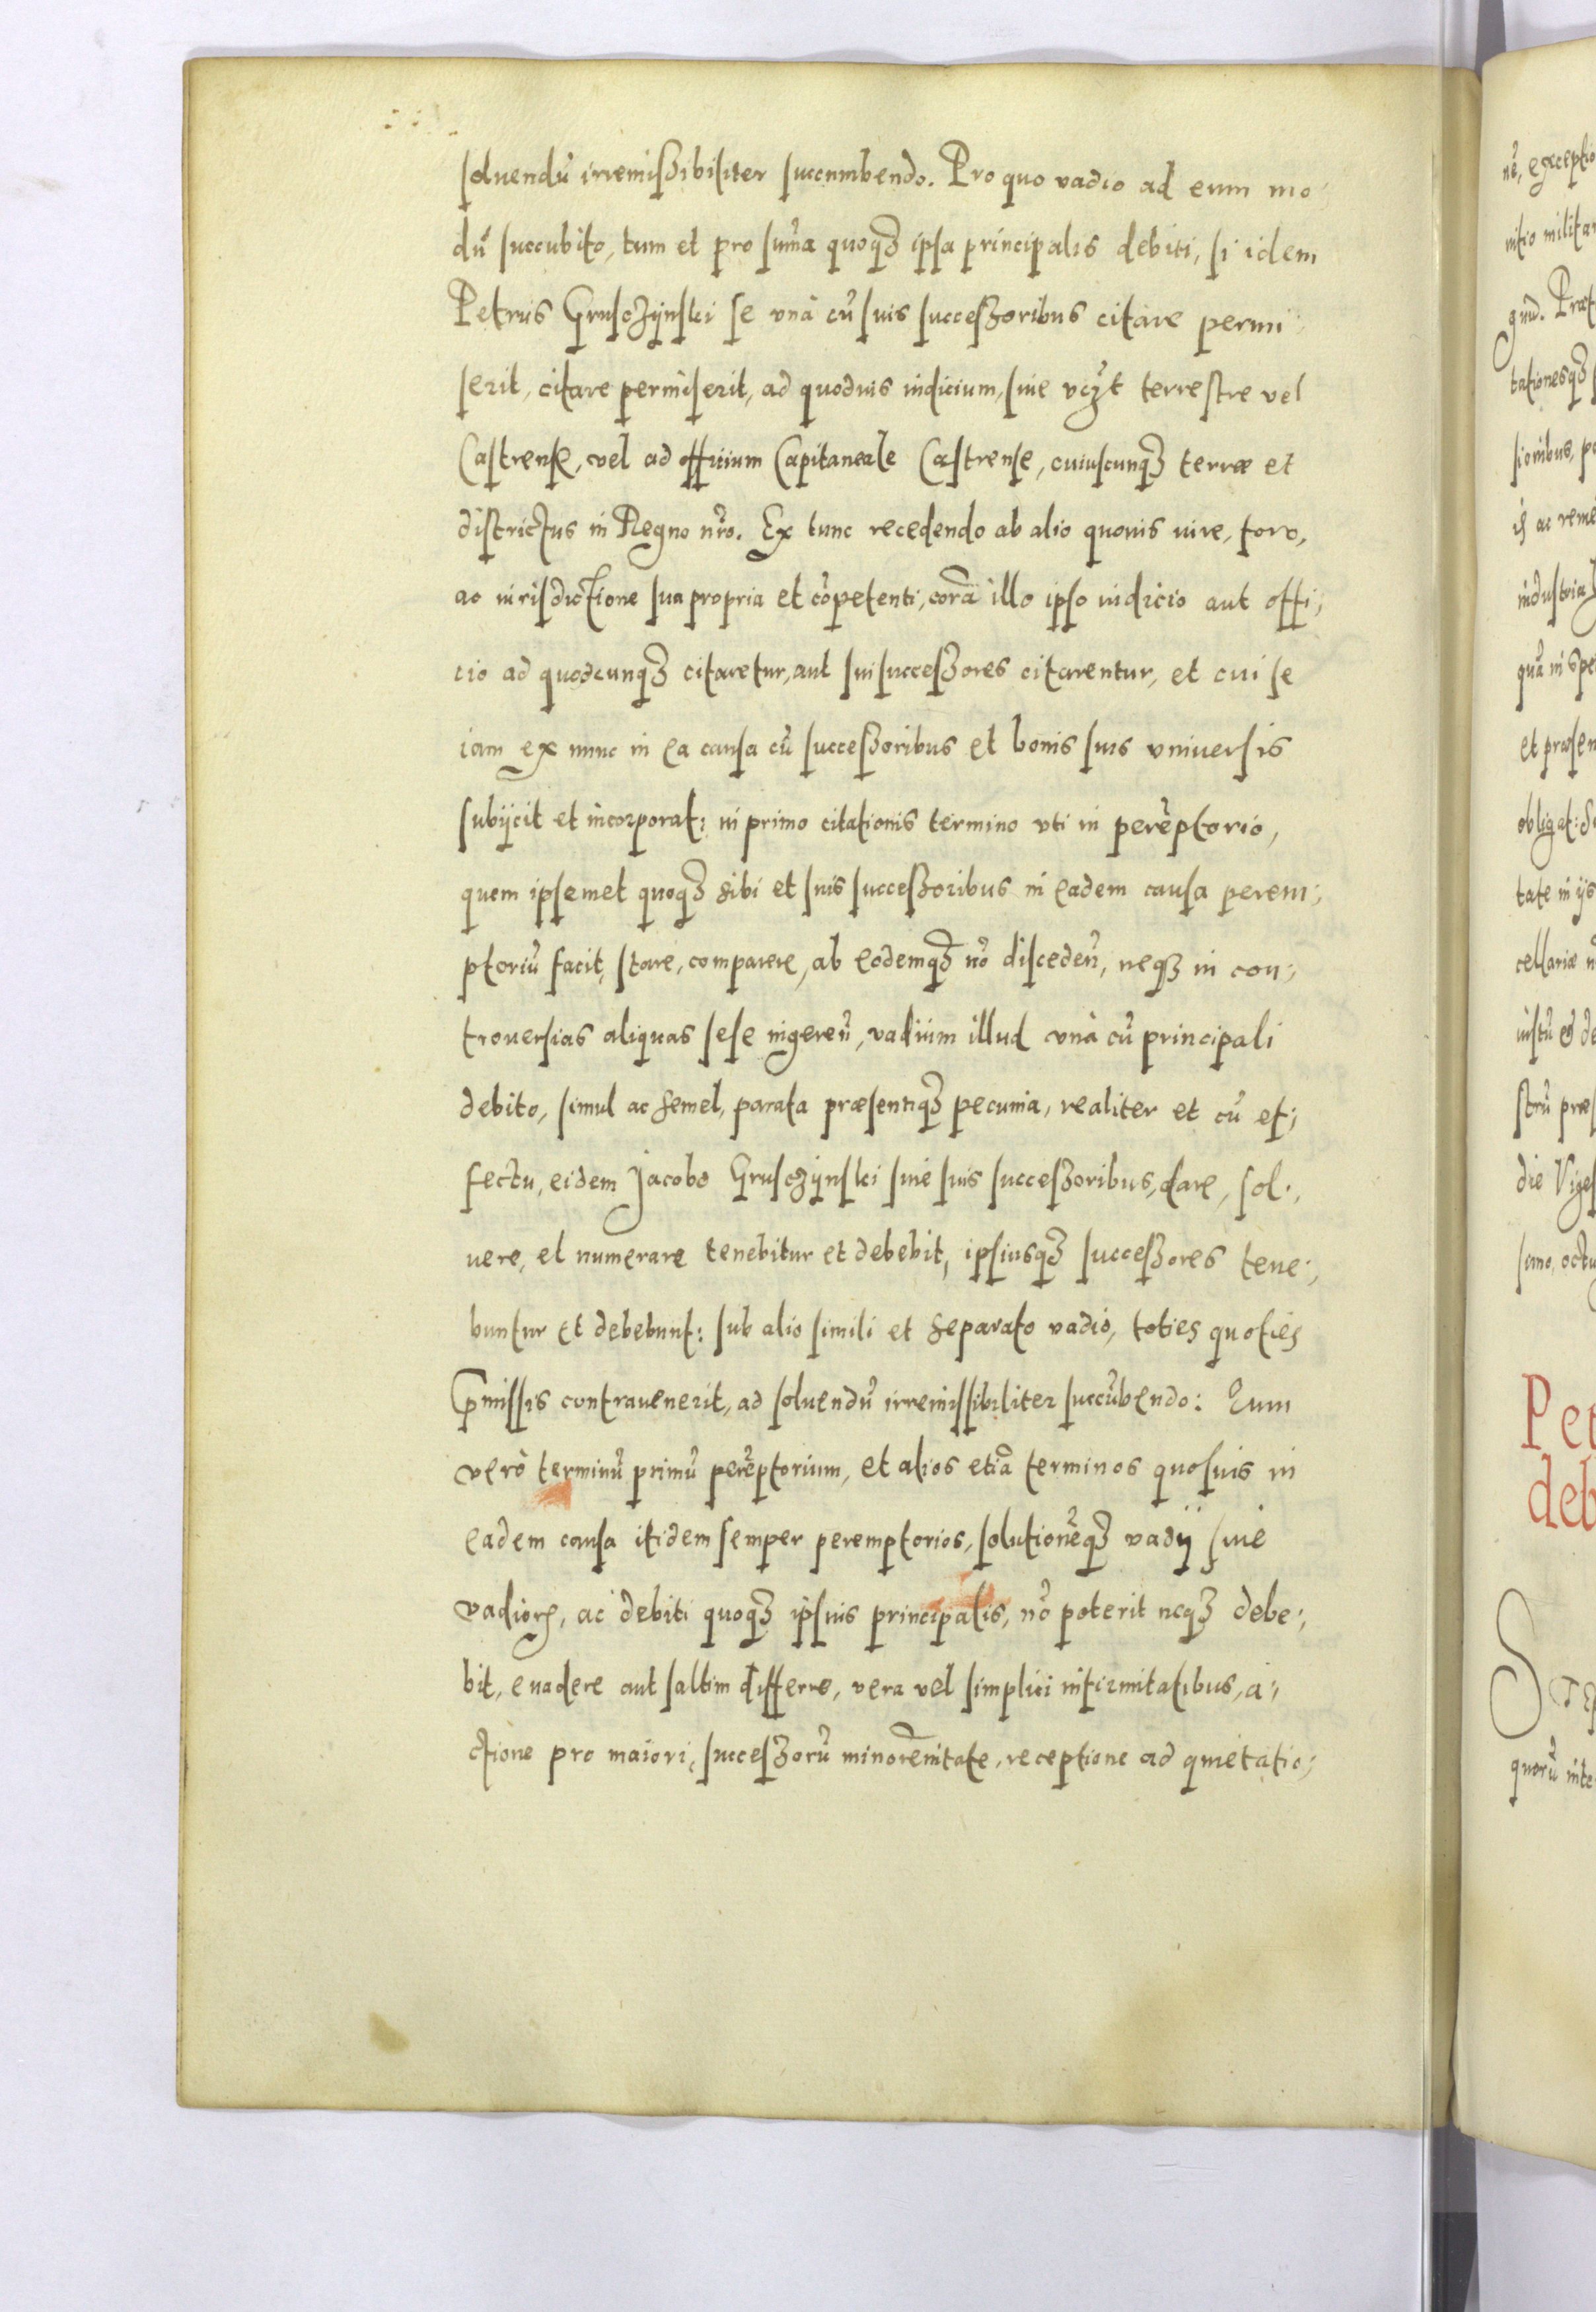 soluendũ irremißibiliter succumbendo. Pro quo vadio ad eum mo:
dũ succubito, tum et pro sum̃a quoqȝ ipsa principalis debiti, si idem
Petrus Grusczÿnski se vnà cũ suis successoribus citare permi:
serit, citare permiserit, ad quoduis iudicium, siue vcȝt terrestre vel
Castrense, vel ad officium Capitaneale Castrense, cuiuscunqȝ terræ et
districtus in Regno nr̃o. Ex tunc recedendo ab alio quouis iure, foro,
ac iurisdictione sua propria et cõpetenti, corã illo ipso iudicio aut offi:
cio ad quodcunqȝ citaretur, aut sui successores citarentur, et cui se
iam ex nunc in ea causa cũ successoribus et bonis suis vniuersis
subijcit et incorporat: in primo citationis termino vti in perẽptorio,
quem ipsemet quoqȝ sibi et suis successoribus in eadem causa perem:
ptoriũ facit, stare, comparere, ab eodemqȝ nõ disceden̄, neqȝ in con:
trouersias aliquas sese ingeren̄, vadium illud vnà cũ principali
debito, simul ac semel, parata præsentiqȝ pecunia, realiter et cũ ef:
fectu, eidem Jacobo Grusczÿnski siue suis successoribus, dare, sol:
uere, et numerare tenebitur et debebit, ipsiusqȝ successores tene:
buntur et debebunt: sub alio simili et separato vadio, toties quoties
p̃missis contrauenerit, ad soluendũ irremissibiliter succũbendo: Eum
verò terminũ primũ perẽptorium, et alios etiã terminos quosuis in
eadem causa itidem semper peremptorios, solutionẽqȝ vadij siue
vadiorꝝ, ac debiti quoqȝ ipsius principalis, nõ poterit neqȝ debe:
bit, euadere aut saltim differre, vera vel simplici infirmitatibus, a:
ctione pro maiori, successorũ minorẽnitate, receptione ad quietatio:
nẽ, exceptio
militar
gnũ. Præt
tationesqȝ
sionibus,
ac reme
industria
et præsen
obligat:
tate in ijs
cellariæ
die Viges
simo, octu
Pet
deb
quorũ inte